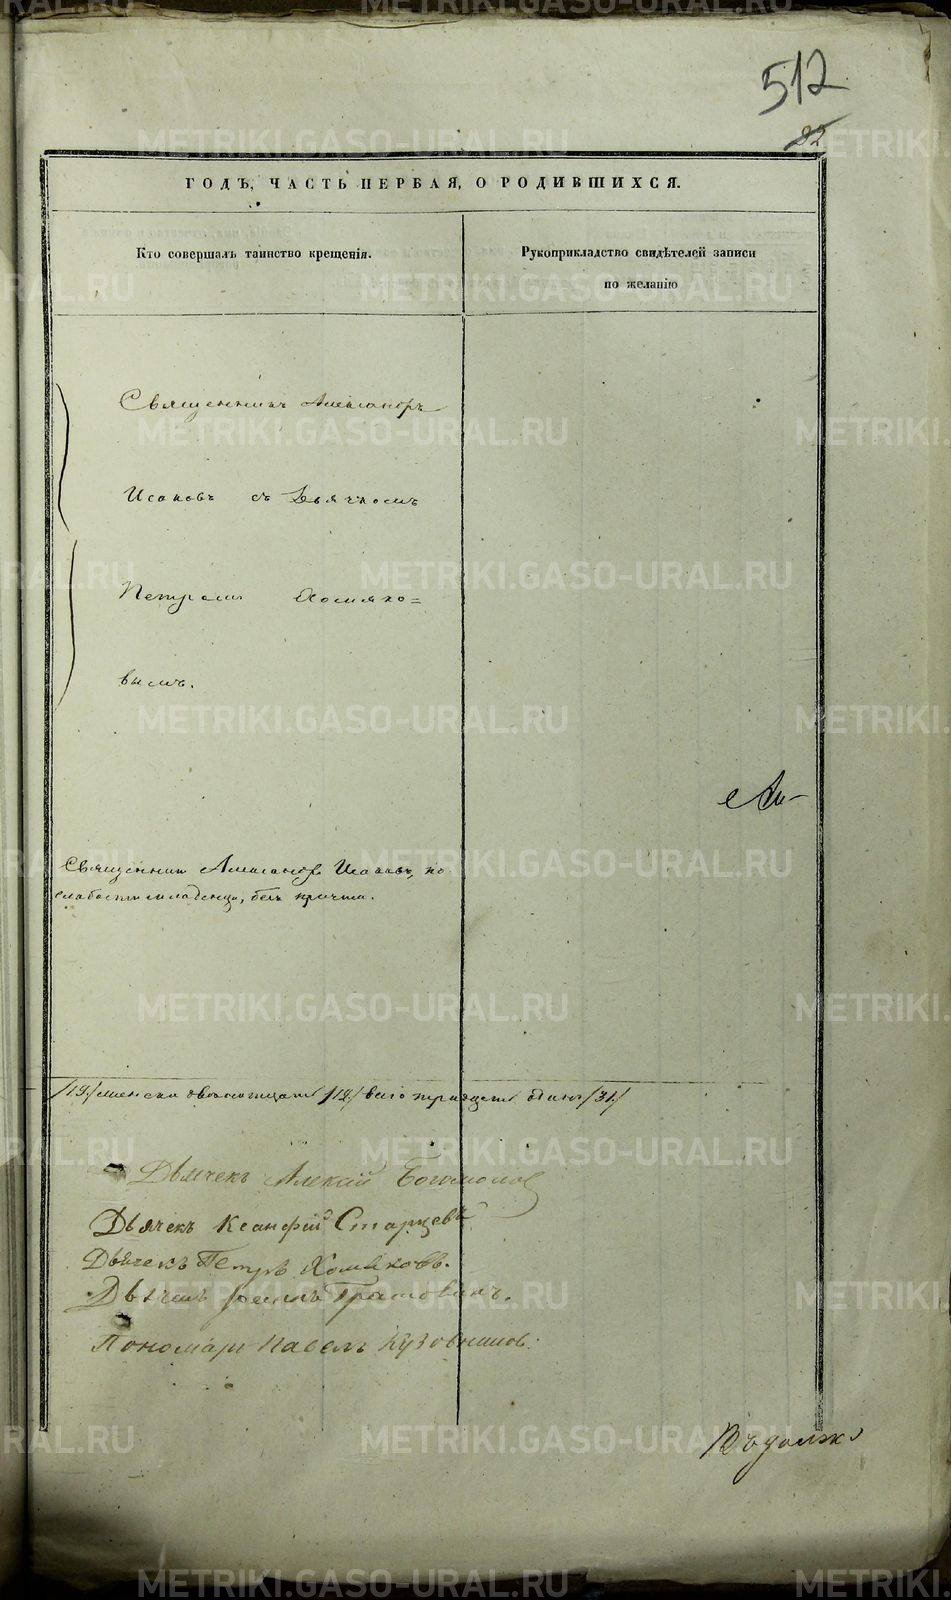 512
82
ГОДЪ, ЧАСТЬ ПЕРВАЯ, О РОДИВШИХСЯ.
Кто совершалъ таинство крещенія.
Рукоприкладство свидѣтелей записи
по желанію
Священникъ Александръ
Исаковъ съ Дьячкомъ
Петромъ Хомяко=
вымъ.
Священник Александръ Исаковъ, по
слабости младенца, безъ причта.
/19./ женска двенатцать /12./ всего тритцать одинъ /31./
Дьячекъ Алексій Богомолов
Дьячекъ Ксанфій Старцевъ
Дьячекъ Петръ Хомяковъ.
Дьячекъ
Пономарь Павелъ Кузовников.
Въ должн
METRIKI.GASO-URAL.RU